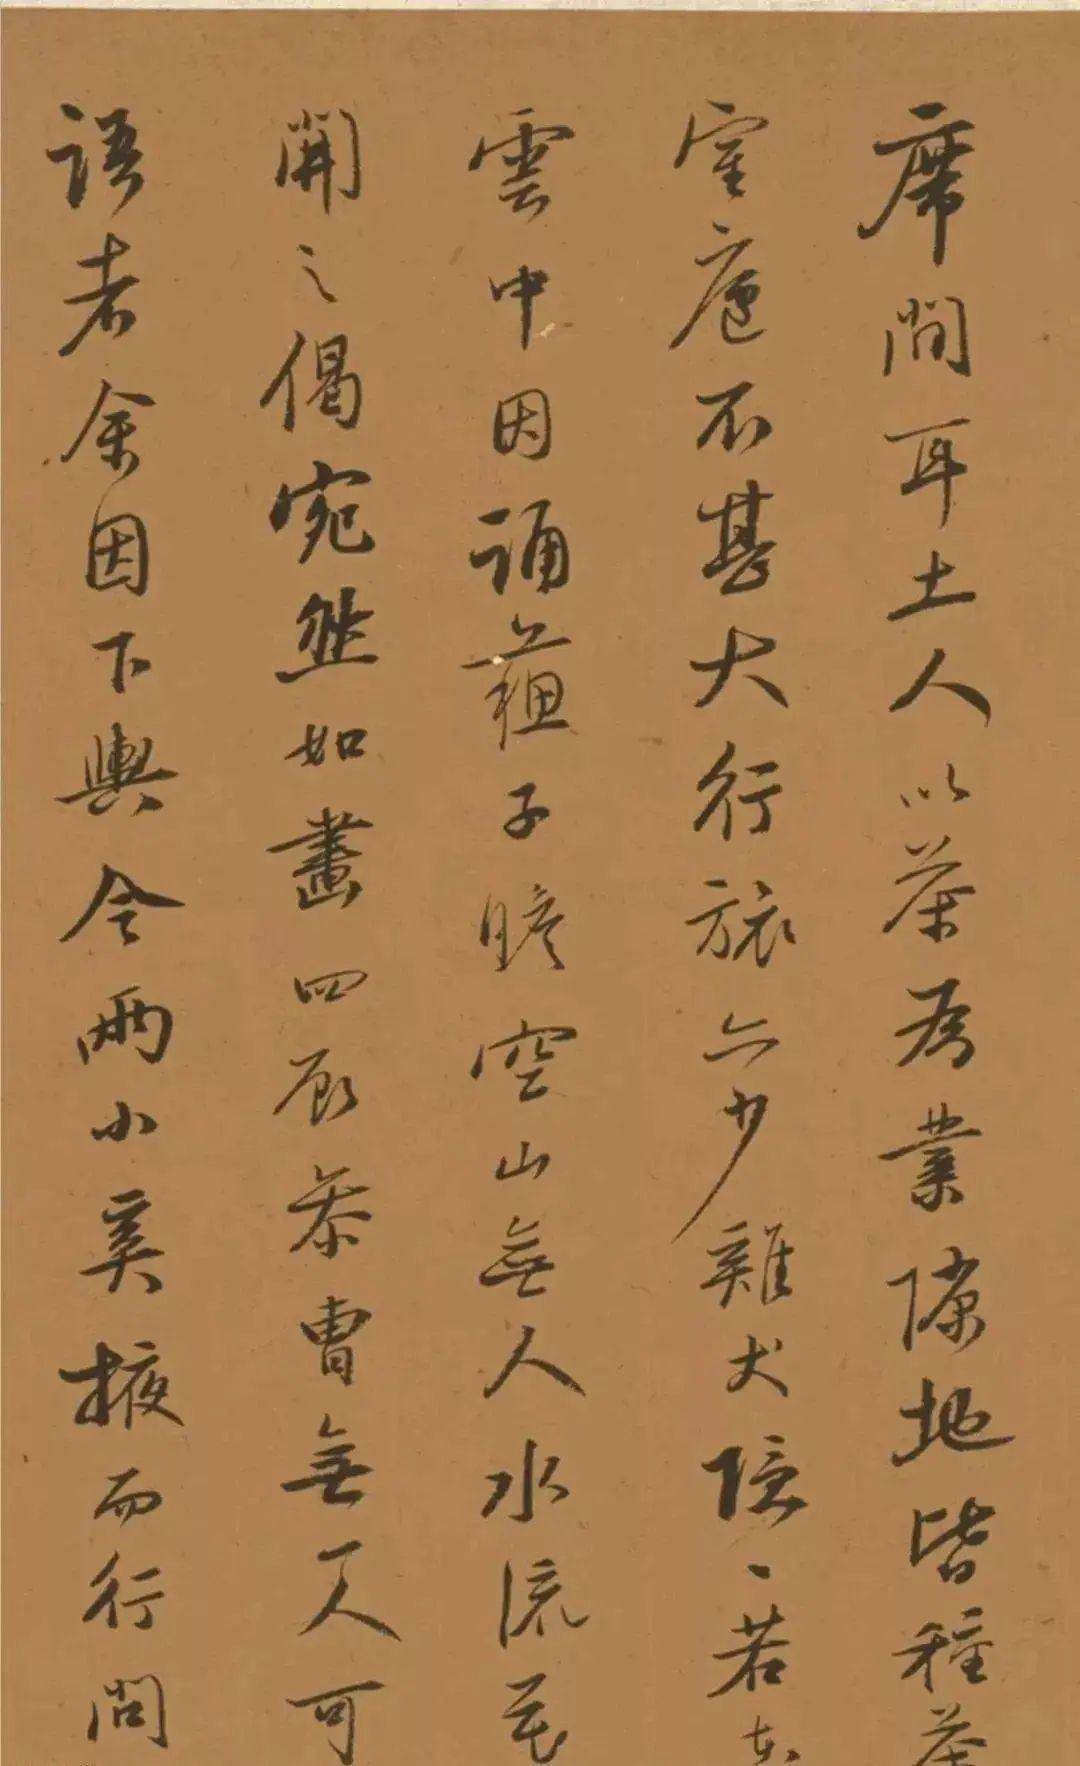 席間耳土人以茶為業隙地皆種茶
室廬不甚大行旅亦少雞犬隱〻若在
雲中因誦蘓子瞻空山無人水流花
開之偈宛然如畫四顧曹無一人可
語者余因下輿令兩小奚掖而行問